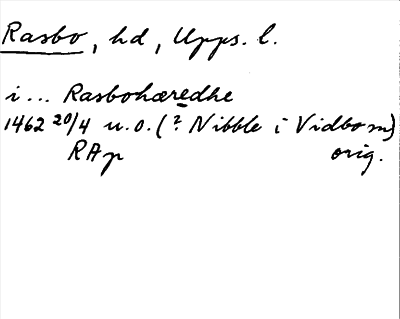 Rasbo, hd, Upps. l.
i... Rasbohæredhe
1462 20/4 u.o. (? Nibble i Vidbo sn)
RAp orig.